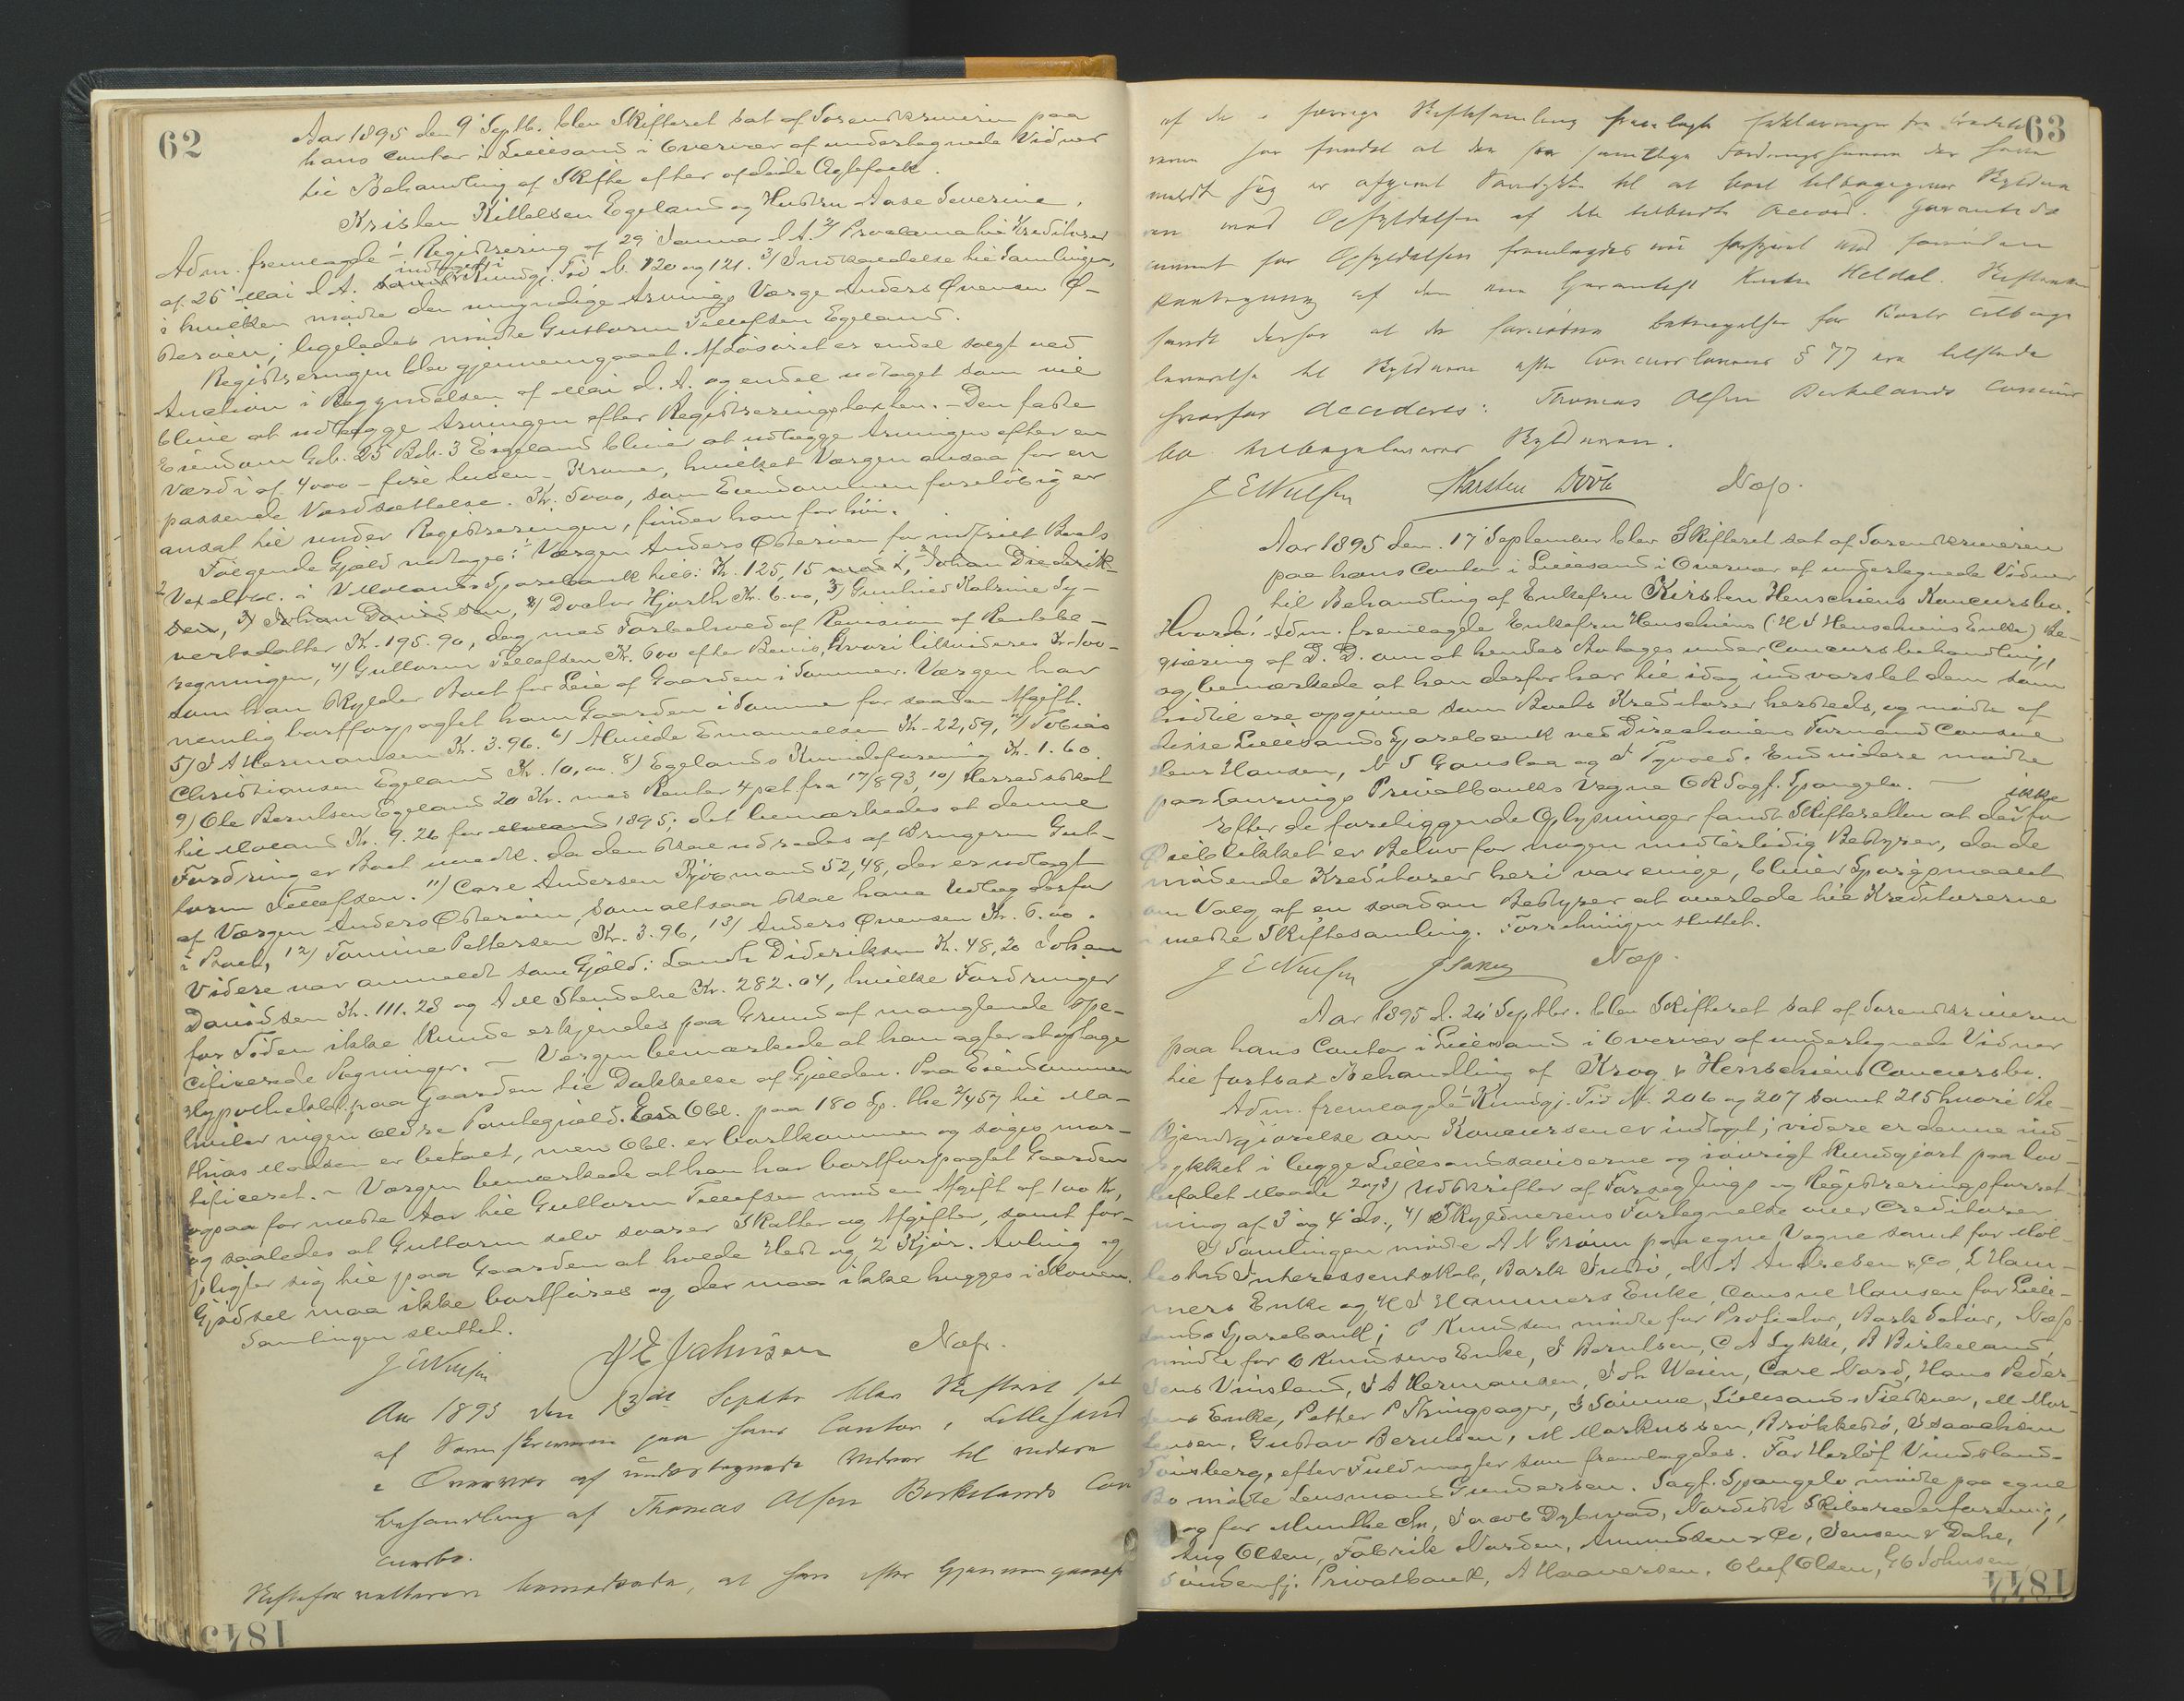 62
Aar 1895 den 9' Septb. blev Skifteret sat af Sorenskriveren paa
hans Contor i Lillesand i Overvær af undertegnede Vidner
til Behandling af Skifte efter afdøde Ægtefolk
Kristen Kittelsen Egeland og Hustru Aase Severine.
Adm. fremlagde 1) Registrering af 29 Januar d. A. 2) Proclama til Kreditorer
af 25' Mai d. A. indtaget i Kundgj. Tid. N. 120 og 121. 3) Indkaldelse til Samlingen,
i hvilken mødte den umyndige Arvings Værge Anders Ovensen Ø-
sterøien; ligeledes mødte Guttorm Tellefsen Egeland.
Registreringen blev gjennemgaaet. Af Løsøret er endel solgt ved
Auction i Begyndelsen af Mai d. A. og endel udtaget som vil
blive at udlægge Arvingen efter Registreringstaxten. - Den faste
Eiendom Gb. 25 Bb. 3 Eigeland bliver at udlægge Arvingen efter en
Værdi af 4000 - fire tusen - Kroner, hvilket Værgen ansaa for en
passende Værdsættelse. Kr. 5000, som Eiendommen foreløbig er
ansat til under Registreringen, finder han for høi.
Følgende Gjæld udtages: 1) Værgen Anders Østerøien for indfriet Boets
Vexel i Vestlands Sparebank hid: Kr. 125,15 2) Johan Diederik-
sen, 3) Johan Davidsen, 2) Doctor Hjorth Kr. 6.00, 3) Gunhild Katrine Sy-
vertsdatter Kr. 195.90, dog med Forbehold af Revision af Rentebe-
regningen, 4) Guttorm Tellefsen Kr. 600 efter Bevis, hvori likvideres Kr. 100 -
som han skylder Boet for Leie af Gaarden i Sommer. Værgen har
nemlig bortforpagtet ham Gaarden i Sommer for saadan Afgift.
5) J A Hermansen Kr. 3.96. 6) Alvilde Emanuelsen Kr. 22,59, 7) Tobias
Christiansen Egeland Kr. 10,00. 8) Egelands Kvindeforening Kr. 1.60.
9) Ole Berulsen Egeland 20 Kr. med Renter 4 pct. fra 17/8 93, 10) Herredsskat
til Moland Kr. 9.26 for 1895; det bemærkedes at denne
Fordring er Boet uvedk. da den skal udredes af Brugeren Gut-
torm Tellefsen. 11) Carl Andersen Kjøbmand 52,48, der er udlagt
af Værgen Anders Østerøien, som altsaa skal have Udlæg derfor
i Boet, 12) Tomine Pettersen Kr. 3.96, 13) Anders Ovensen Kr. 6.00.
Videre var anmeldt som Gjæld: Landh. Dideriksen Kr. 48,20 Johan
Davidsen Kr. 111.28 og A M Stendahl Kr. 282.04, hvilke Fordringer
for Tiden ikke kunde erkjendes paa Grund af manglende spe-
cificerede Regninger. — Værgen bemærkede at han agter at optage
Hypotheklaan paa Gaarden til Dækkelse af Gjælden. Paa Eiendommen
hviler ingen ældre Pantegjæld. Obl. paa 180 Sp. thl. 2/4 57 til Ma-
thias Madsen er betalt, men Obl. er bortkommen og søges mor-
tificeret. - Værgen bemærkede at han har bortforpagtet Gaarden
ogsaa for næste Aar til Guttorm Tellefsen mod en Afgift af 100 Kr,
og saaledes at Guttorm selv svarer Skatter og Afgifter, samt for-
pligter sig til paa Gaarden at holde Hest og 2 Kjør. Avling og
Gjødsel maa ikke bortføres og der maa ikke hugges i Skoven.
Samlingen sluttet.
J E Nielsen J E Jahnsen Næp.
Aar 1895 den 13de Septbr blev Skifteret sat
af Sorenskriveren paa hans Contor i Lillesand
i Overvær af undertegnede Vidner til videre
behandling af Thomas Olsen Birkelands Con
cursbo.
Skifteforvalteren bemærkede, at han efter Gjennemgaaelse
63
af de i forrige Skiftesamling fremlagte Erklæringer fra Kredito
rerne har fundet at den for samtlige Fordringshavere der havde
meldt sig er afgivet Samtykke til at Boet tilbagegives Skyldne
ren mod Opfyldelsen af den tilbudte Accord. Garantido
cument for Opfyldelsen fremlagdes nu forsynet med fornøden
Paategning af den ene Garantist Knuth Heldal. Skifteretten
fandt derfor at de fornødne betingelser for Boets Tilbage
leverelse til Skyldneren efter Concurslovens § 77 ere tilstede
hvorfor decideres: Thomas Olsen Birkelands Concurs
bo tilbageleveres Skyldneren.
J E Nielsen Karsten Næp.
Aar 1895 den 17 September blev Skifteret sat af Sorenskriveren
paa hans Contor i Lillesand i Overvær af undertegnede Vidner
til Behandling af Enkefru Kirsten Henschiens Konkursbo.
Hvorda: Adm. fremlagde Enkefru Henschiens (H J Henschiens Enke) Be-
gjæring af D. D. om at hendes Bo tages under Concursbehandling,
og bemærkede at han derfor har til idag indvarslet dem som
hidtil ere opgivne som Boets Kreditorer hersteds, og mødte af
disse Lillesands Sparebank ved Directionens Formand Consul
Hansen, N S Gauslaa og J Tyvold. Endvidere mødte
paa Privatbanks Vegne O R Sagf. Spangelo. — ikke
Efter de foreliggende Oplysninger fandt Skifteretten at der for
Øieblikket er Behov for nogen midlertidig Bestyrer, da de
mødende Kreditorer heri var enige, bliver Spørgsmaalet
om Valg af en saadan Bestyrer at overlade til Kreditorerne
i næste Skiftesamling. Forretningen sluttet.
J E Nielsen Næp.
Aar 1895 d. 24' Septbr. blev Skifteret sat af Sorenskriveren
paa hans Contor i Lillesand i Overvær af undertegnede Vidner
til fortsat Behandling af Krog & Henschiens Concursbo.
Adm. fremlagde 1) Kundgj. Tid N. 206 og 207 samt 215 hvori Be-
kjendtgjørelse om Koncursen er indtaget; videre er denne ind-
rykket i begge Lillesandsaviserne og iøvrigt kundgjort paa lov-
befalet Maade 2 og 3) Udskrifter af Forseglings og Registreringsforret-
ning af 3' og 4' ds., 4) Skyldnerens Fortegnelse over Creditorer
I Samlingen mødte A N Grøum paa egne Vegne samt for Møl-
Interessentskab, Bark Juno, M A Andresen & Co, L Ham-
mers Enke og H J Hammers Enke, Consul Hansen for Lille-
sands Sparebank; P Knudsen mødte for Protector, Bark Solør, Næp
mødte for O Knudsens Enke, J Berulsen, C A Lykke, A Birkeland,
Jens Vinsland, J A Hermansen, Joh Weien, Carl Nord, Hans Peder-
sens Enke, Petter P Thingsager, Lillesands Tidende, M Mor-
tensen, Gustav Berulsen, M Markussen, Brøkkestø, Isaachsen
Tønsberg, efter Fuldmagter som fremlagdes. For Herlof Vindslands
Bo mødte Lensmand Gundersen. Sagf. Spangelo mødte paa egne
og for Munthe Chr, Jacob Dybwad, Nordisk Skibsrederforening,
Aug Olsen, Fabrik Norden, Amundsen & Co, Jensen & Dahl,
Søndenfj. Privatbank, A Haaversen, Oluf Olsen, G O Johnsen
1845
1844